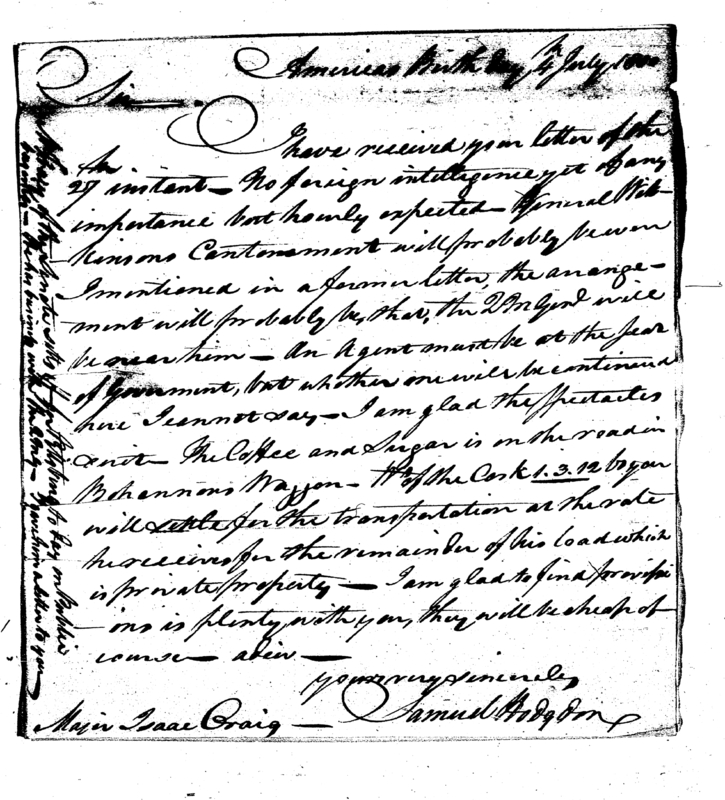 Americas Birth day 4th July 1800
Sir
I have received your letter of the
27th instant — No foreign intelligence yet of any
importance but hourly expected — General Wil-
kinsons Cantonement will probably be were
I mentioned in a former letter, the arrange-
ment will probably be, that, the Q M Genl will
be near him — An Agent must be at the seat
of Goverment, but whether one will be continued
here I cannot say — I am glad the spectacles
suit — The Coffee and Sugar is on the road in
Bohannons Waggon — Wt of the Cask 1.3.12 
will settle for the transportation at the rate
he receives for the remainder of his load which
is private property — I am glad to find provissi-
ons is plenty with you, they will be cheap of
course — adieu —
yours very sincerely
Samuel Hodgdon
Major Isaac Craig —
on Public
he has business with the Army — I gave him a letter to you